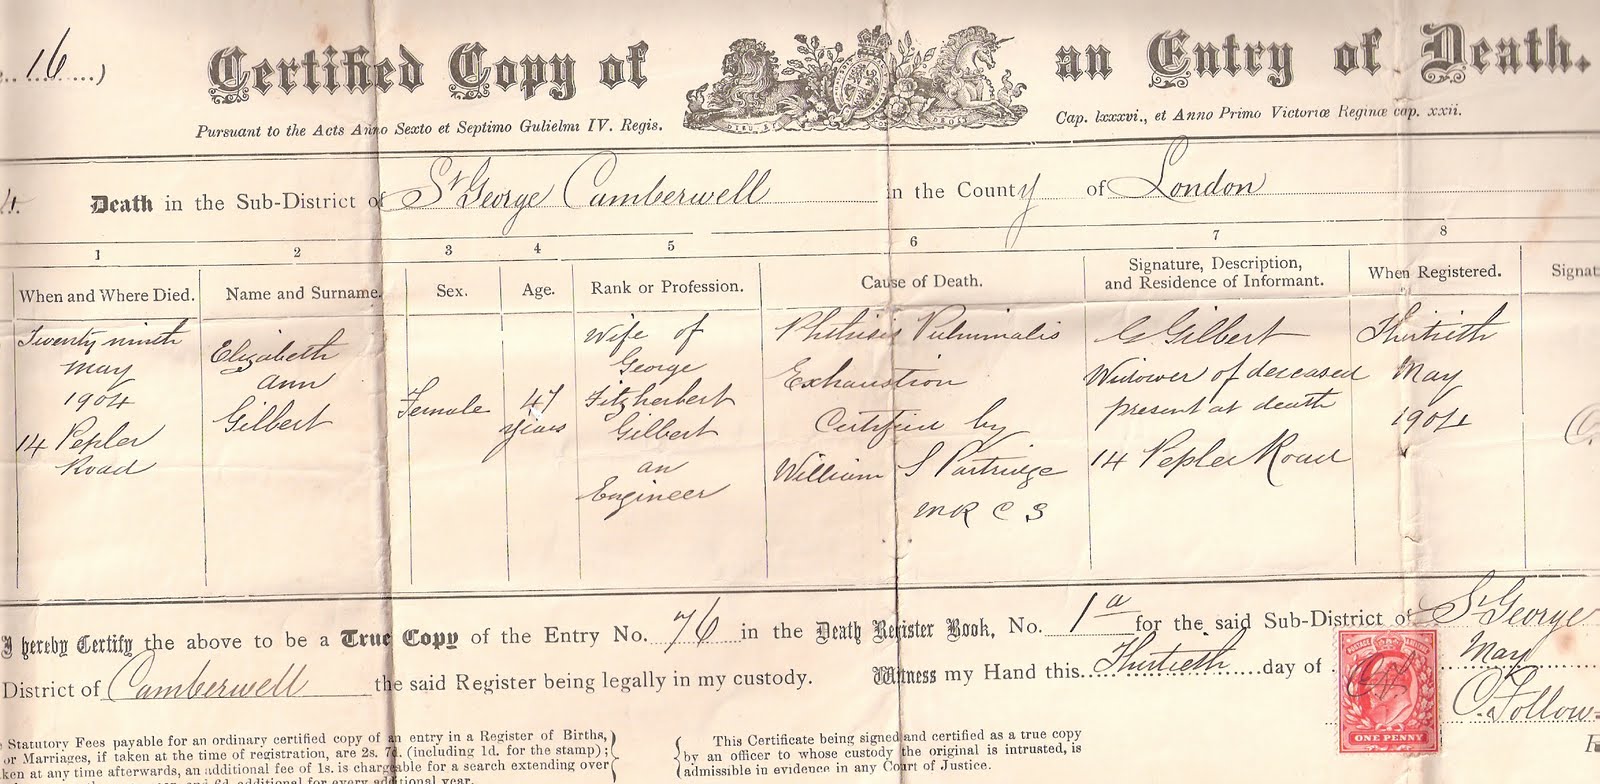 16
Certified Copy of an Entry of Death.
Pursuant to the Acts Anno Sexto et Septimo Gulielmi IV. Regis. Cap. lxxxvi., et Anno Primo Victoriæ Reginæ cap. xxii.
Death in the Sub-District of St George Camberwell in the County of London
1 2 3 4 5 6 7 8
When and Where Died. Name and Surname. Sex. Age. Rank or Profession. Cause of Death. Signature, Description, and Residence of Informant. When Registered. Signat
Twenty ninth
May
1904
14 Pepler
Road
Elizabeth
Ann
Gilbert
Female
47
years
Wife of
George
Fitzherbert
Gilbert
an
Engineer
Phthisis Pulmonalis
Exhaustion
Certified by
William S Partridge
MRCS
G Gilbert
Widower of deceased
present at death
14 Pepler Road
Thirtieth
May
1904
I hereby Certify the above to be a True Copy of the Entry No. 76 in the Death Register Book, No. 1a for the said Sub-District of St George
District of Camberwell the said Register being legally in my custody. Witness my Hand this Thirtieth day of May
ONE PENNY
Statutory Fees payable for an ordinary certified copy of an entry in a Register of Births,
or Marriages, if taken at the time of registration, are 2s. 7d. (including 1d. for the stamp);
ken at any time afterwards, an additional fee of 1s. is chargeable for a search extending over
This Certificate being signed and certified as a true copy
by an officer to whose custody the original is intrusted, is
admissible in evidence in any Court of Justice.